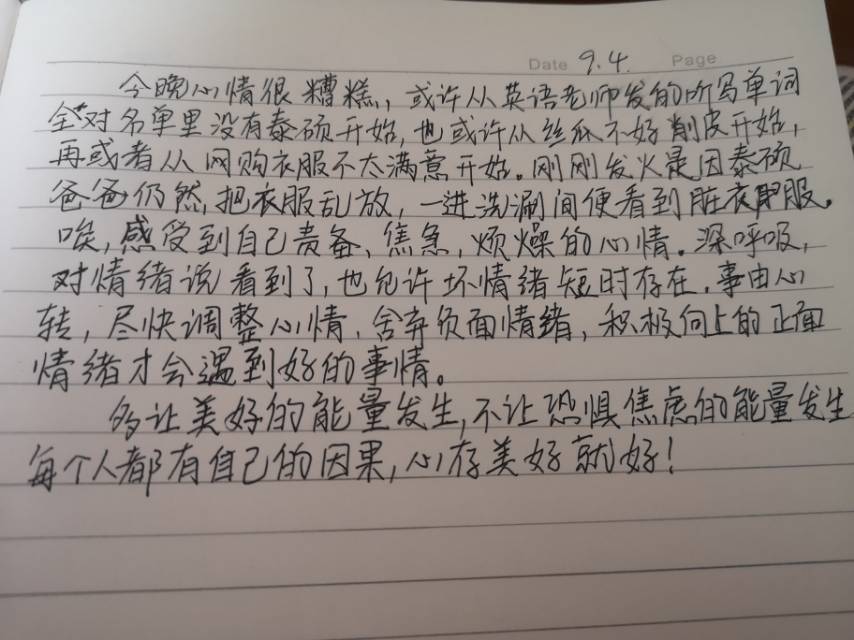 Date 9.4. Page
今晚心情很糟糕，或许从英语老师发的听写单词
全对名单里没有泰硕开始，也或许从丝瓜不好削皮开始，
再或者从网购衣服不太满意开始。刚刚发火是因泰硕
爸爸仍然，把衣服乱放，一进洗涮间便看到脏衣服。
唉，感受到自己责备、焦急，烦燥的心情。深呼吸，
对情绪说看到了，也允许坏情绪短时存在，事由心
转，尽快调整心情，舍弃负面情绪，积极向上的正面
情绪才会遇到好的事情。
多让美好的能量发生，不让恐惧焦虑的能量发生
每个人都有自己的因果，心存美好就好！